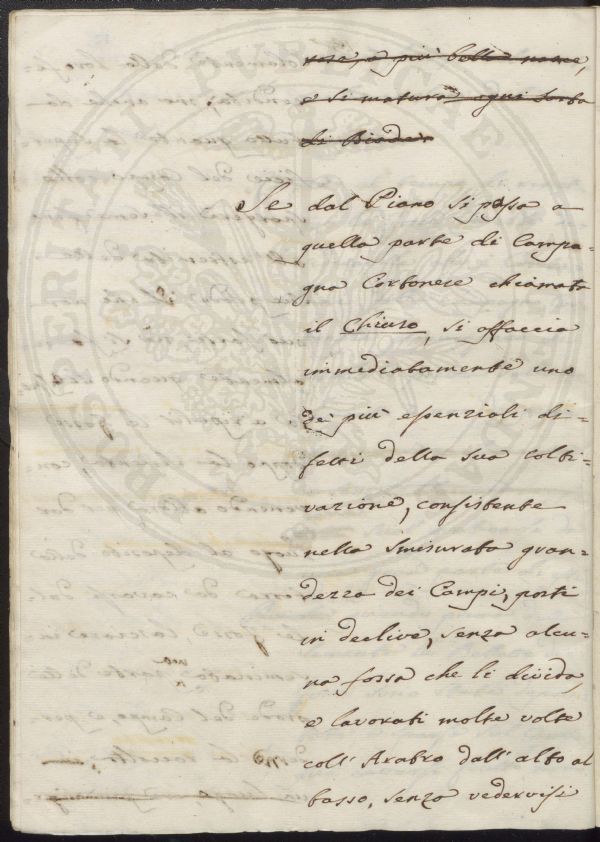 rose, a più belle nasce,
e si matura ogni sorta
di Biade.
Se dal Piano si passa a
quella parte di Campa=
gna Cortonese chiamata
il Chiuso, si affaccia
immediatamente uno
de' più essenziali di=
fetti della sua colti=
vazione, consistente
nella smisurata gran=
dezza dei Campi, posti
in declive, senza alcu=
na fossa che li divida,
e lavorati molte volte
coll' Aratro dall' alto al
basso, senza vedervisi